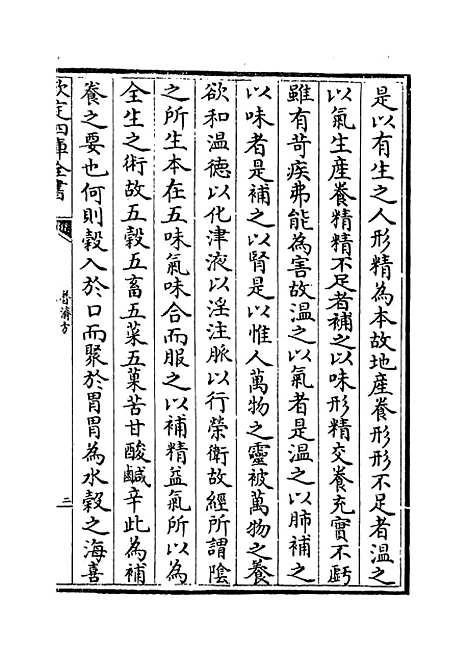 是以有生之人形精為本故地産養形形不足者温之
以氣生産養精精不足者補之以味形精交養充實不虧
雖有苛疾弗能為害故温之以氣者是温之以肺補之
以味者是補之以腎是以惟人萬物之靈被萬物之養
欲和温德以化津液以淫注脈以行榮衛故經所謂陰
之所生本在五味氣味合而服之以補精益氣所以為
全生之術故五穀五畜五菜五菓苦甘酸鹹辛此為補
養之要也何則穀入於口而聚於胃胃為水穀之海喜
欽定四庫全書
普濟方
二